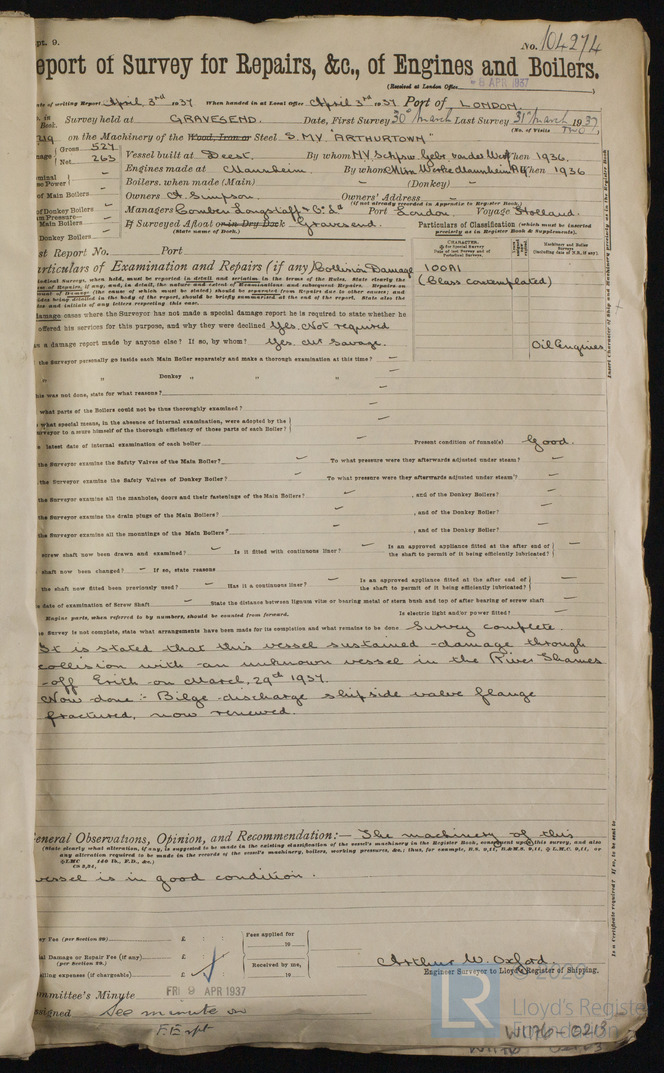 pt. 9.
No. 104274
eport of Survey for Repairs, &c., of Engines and Boilers.
(Received at London Office 8 APR 1937)
ate of writing Report April 3rd 1937 When handed in at Local Office April 3rd 1937 Port of LONDON.
in Book. Survey held at GRAVESEND. Date, First Survey 30th March Last Survey 31st March 1937
(No. of Visits TWO)
on the Machinery of the Wood, Iron or Steel S.M.V. "ARTHURTOWN"
Gross 527
Net 263
Vessel built at Deest. By whom N.V. Schpsw. Gebr. van der Werf When 1936.
Engines made at Mannheim By whom When 1936
Boilers, when made (Main) — (Donkey) —
of Main Boilers —
Owners A. Simpson. Owners' Address —
(if not already recorded in Appendix to Register Book.)
of Donkey Boilers —
Managers Comber Longstaff & Co Ld Port London Voyage Holland.
Main Boilers —
Donkey Boilers —
If Surveyed Afloat or in Dry Dock Gravesend.
(State name of Dock.)
Particulars of Classification (which must be inserted precisely as in Register Book & Supplements).
st Report No. Port
articulars of Examination and Repairs (if any) Collision Damage
100A1
(Class contemplated)
Oil Engines
damage cases where the Surveyor has not made a special damage report he is required to state whether he
offered his services for this purpose, and why they were declined Yes. Not required
a damage report made by anyone else? If so, by whom? Yes. Mr Savage.
the Surveyor personally go inside each Main Boiler separately and make a thorough examination at this time? —
„ „ Donkey „ „ „ —
his was not done, state for what reasons? —
what parts of the Boilers could not be thus thoroughly examined? —
what special means, in the absence of internal examination, were adopted by the
urveyor to assure himself of the thorough efficiency of those parts of each Boiler? —
latest date of internal examination of each boiler — Present condition of funnel(s) Good.
the Surveyor examine the Safety Valves of the Main Boiler? — To what pressure were they afterwards adjusted under steam? —
the Surveyor examine the Safety Valves of Donkey Boiler? — To what pressure were they afterwards adjusted under steam? —
the Surveyor examine all the manholes, doors and their fastenings of the Main Boilers? — , and of the Donkey Boilers? —
the Surveyor examine the drain plugs of the Main Boilers? — , and of the Donkey Boiler? —
the Surveyor examine all the mountings of the Main Boilers? — , and of the Donkey Boiler? —
screw shaft now been drawn and examined? — Is it fitted with continuous liner? — Is an approved appliance fitted at the after end of the shaft to permit of it being efficiently lubricated? —
shaft now been changed? — If so, state reasons
the shaft now fitted been previously used? — Has it a continuous liner? — Is an approved appliance fitted at the after end of the shaft to permit of it being efficiently lubricated? —
date of examination of Screw Shaft — State the distance between lignum vitæ or bearing metal of stern bush and top of after bearing of screw shaft —
Engine parts, when referred to by numbers, should be counted from forward. Is electric light and/or power fitted? —
he Survey is not complete, state what arrangements have been made for its completion and what remains to be done Survey complete.
It is stated that this vessel sustained damage through
collision with an unknown vessel in the River Thames
off Erith on March, 29th 1937.
Now done :- Bilge discharge shipside valve flange
fractured, now renewed.
eneral Observations, Opinion, and Recommendation:— The machinery of this
(State clearly what alteration, if any, is suggested to be made in the existing classification of the vessel's machinery in the Register Book, consequent upon this survey, and also
any alteration required to be made in the records of the vessel's machinery, boilers, working pressures, &c.; thus, for example,
vessel is in good condition.
ey Fee (per Section 29.) £ : :
Fees applied for 19
ial Damage or Repair Fee (if any) £ : :
(per Section 29.)
Received by me,
elling expenses (if chargeable) £ : : 19
Arthur W. Oxford.
Engineer Surveyor to Lloyd's Register of Shipping.
ommittee's Minute FRI 9 APR 1937
ssigned See minute on
F.E. rpt
Is a Certificate required? If so, to be sent to
© 2020
LR
Lloyd's Register
Foundation
W1176-0213